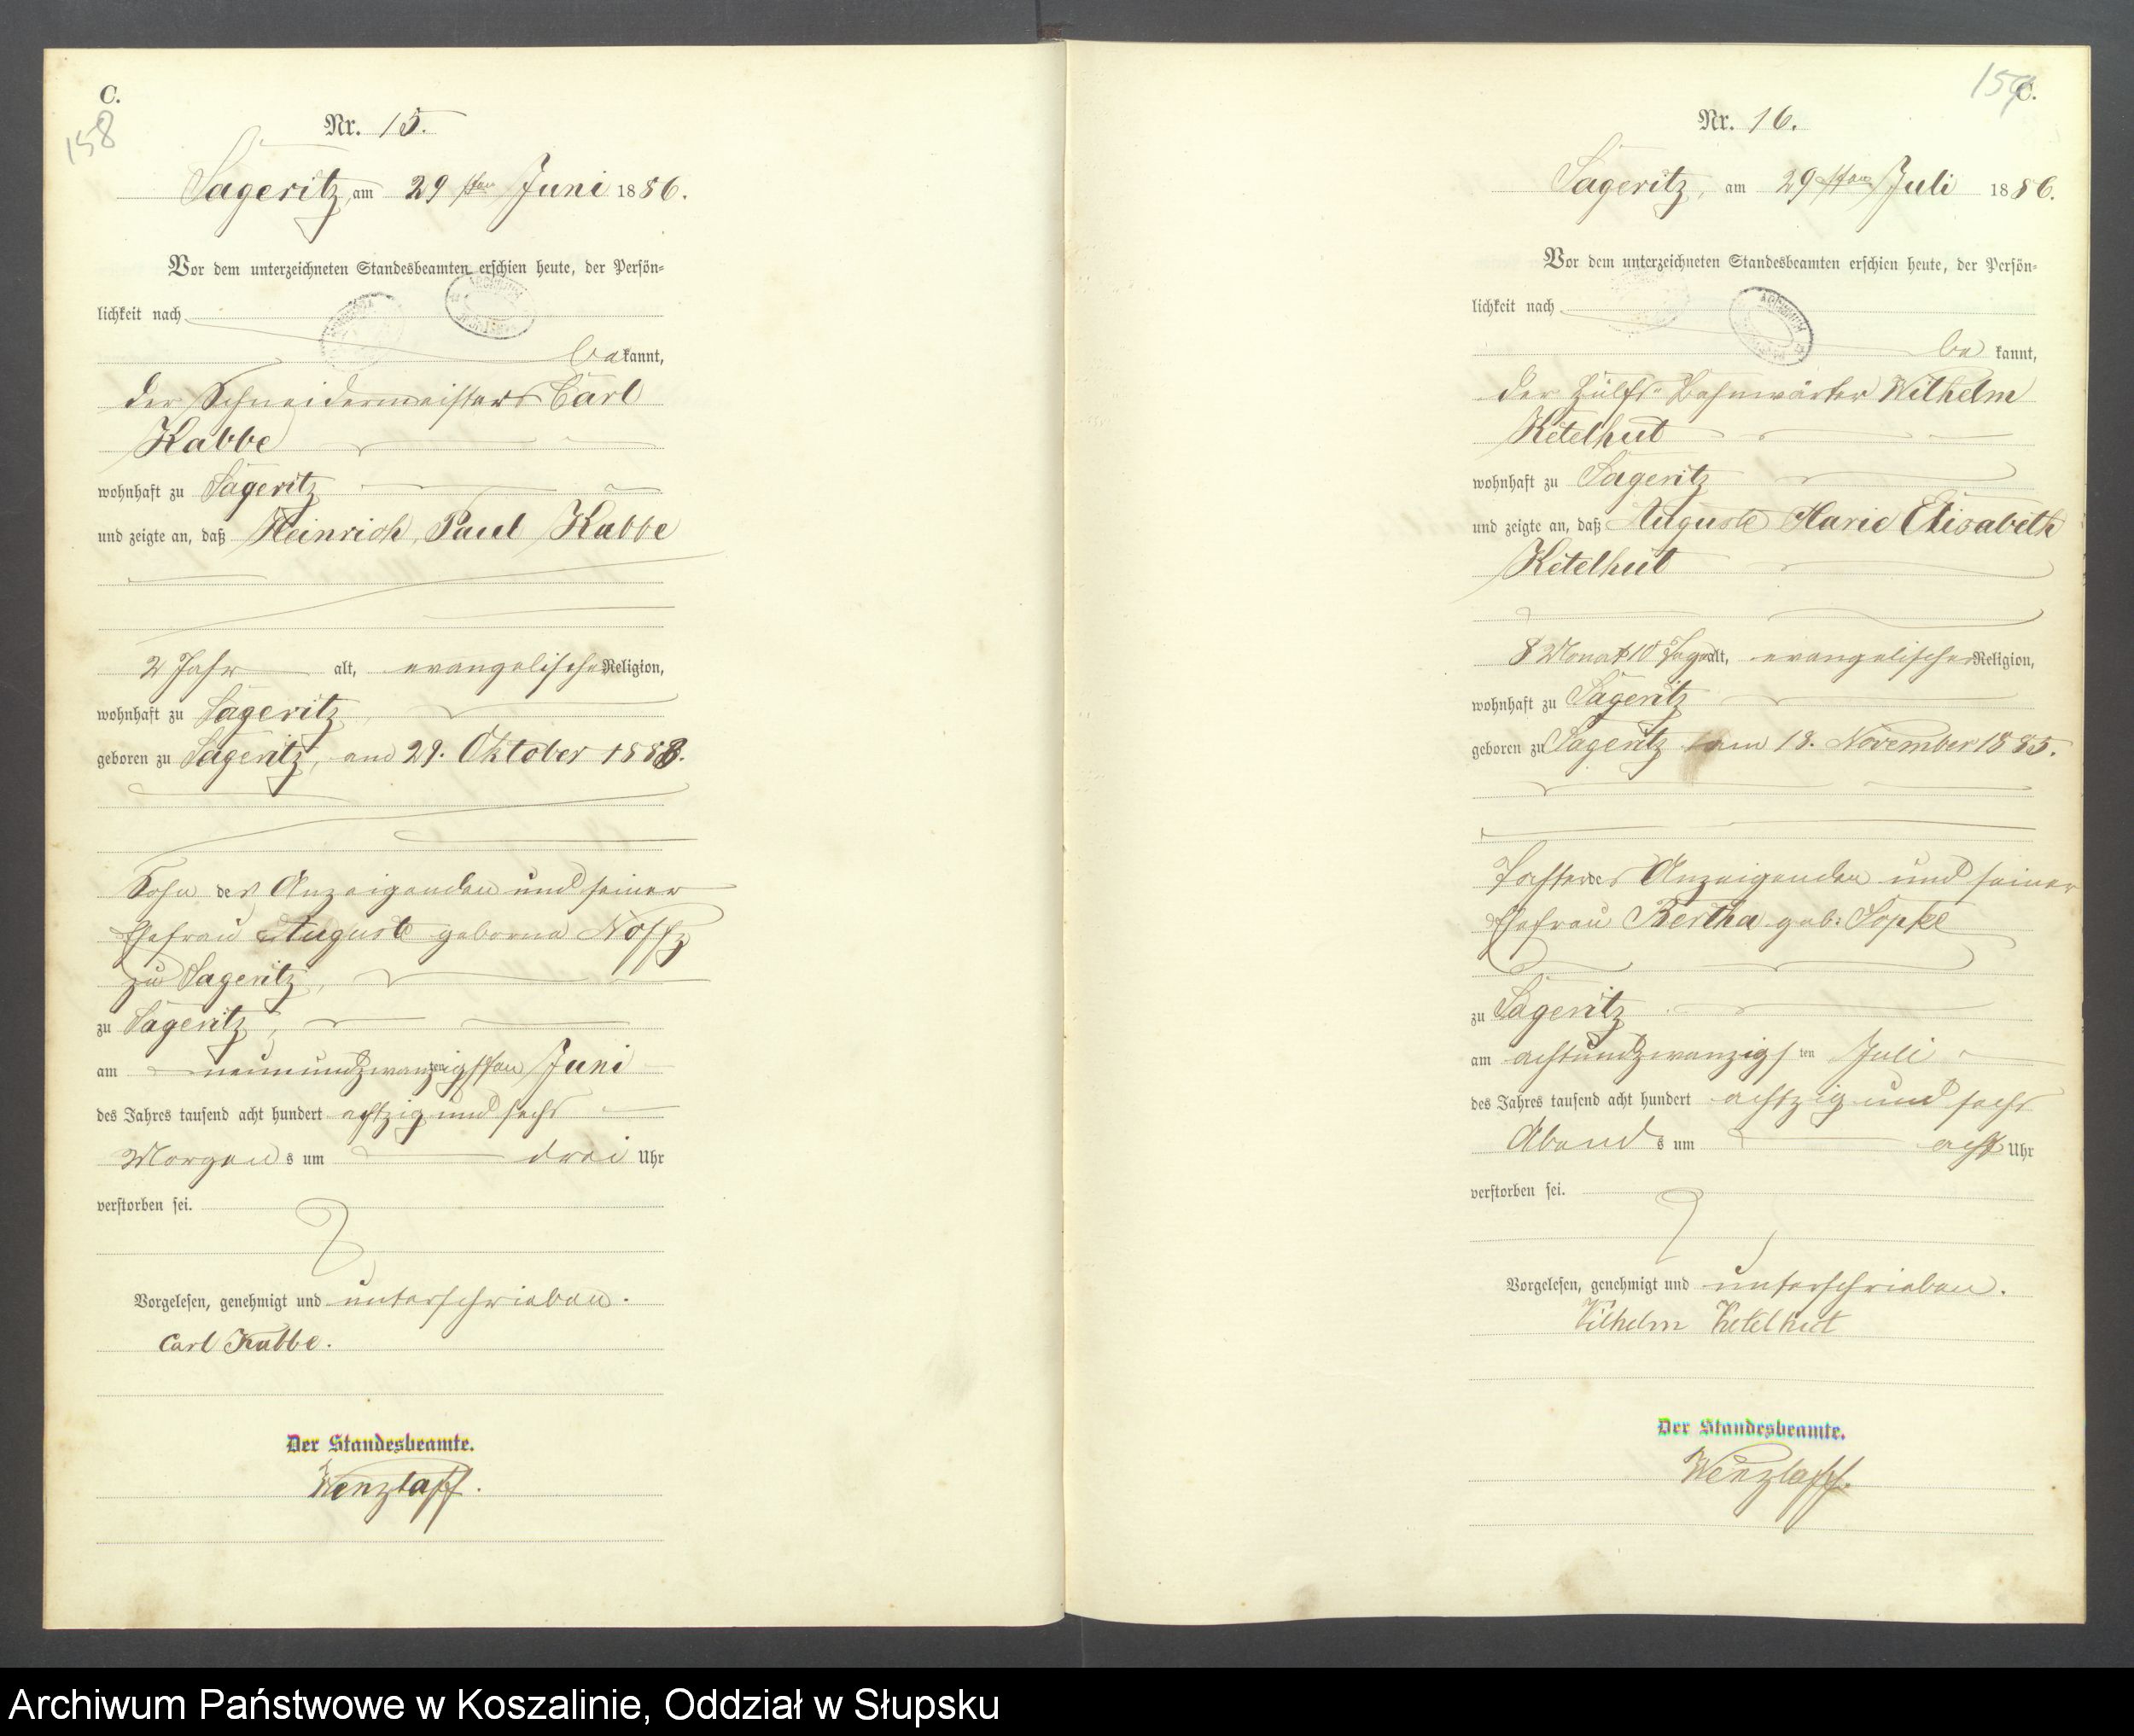 C.
158
Nr. 15.
Sageritz, am 29sten Juni 1886.
Vor dem unterzeichneten Standesbeamten erschien heute, der Persön-
lichkeit nach
bekannt,
der Schneidermeister Carl
Kabbe
wohnhaft zu Sageritz
und zeigte an, daß Heinrich Paul Kabbe
2 Jahr alt, evangelischer Religion,
wohnhaft zu Sageritz
geboren zu Sageritz, am 29. Oktober 1883.
Sohn des Anzeigenden und seiner
Ehefrau Auguste geborne Noffz
zu Sageritz,
zu Sageritz,
am neunundzwanzigsten Juni
des Jahres tausend acht hundert achtzig und sechs
Morgens um drei Uhr
verstorben sei.
Vorgelesen, genehmigt und unterschrieben.
Carl Kabbe.
Der Standesbeamte.
Wenzlaff.
159
C.
Nr. 16.
Sageritz, am 29sten Juli 1886.
Vor dem unterzeichneten Standesbeamten erschien heute, der Persön-
lichkeit nach
bekannt,
der Hülfs-Bahnwärter Wilhelm
Ketelhut
wohnhaft zu Sageritz
und zeigte an, daß Auguste Marie Elisabeth
Ketelhut
8 Monat 10 Tage alt, evangelischer Religion,
wohnhaft zu Sageritz
geboren zu Sageritz am 18. November 1885.
Tochter des Anzeigenden und seiner
Ehefrau Bertha geb: Topke
zu Sageritz
am achtundzwanzigsten Juli
des Jahres tausend acht hundert achtzig und sechs
Abends um acht Uhr
verstorben sei.
Vorgelesen, genehmigt und unterschrieben.
Wilhelm Ketelhut
Der Standesbeamte.
Wenzlaff.
Archiwum Państwowe w Koszalinie, Oddział w Słupsku